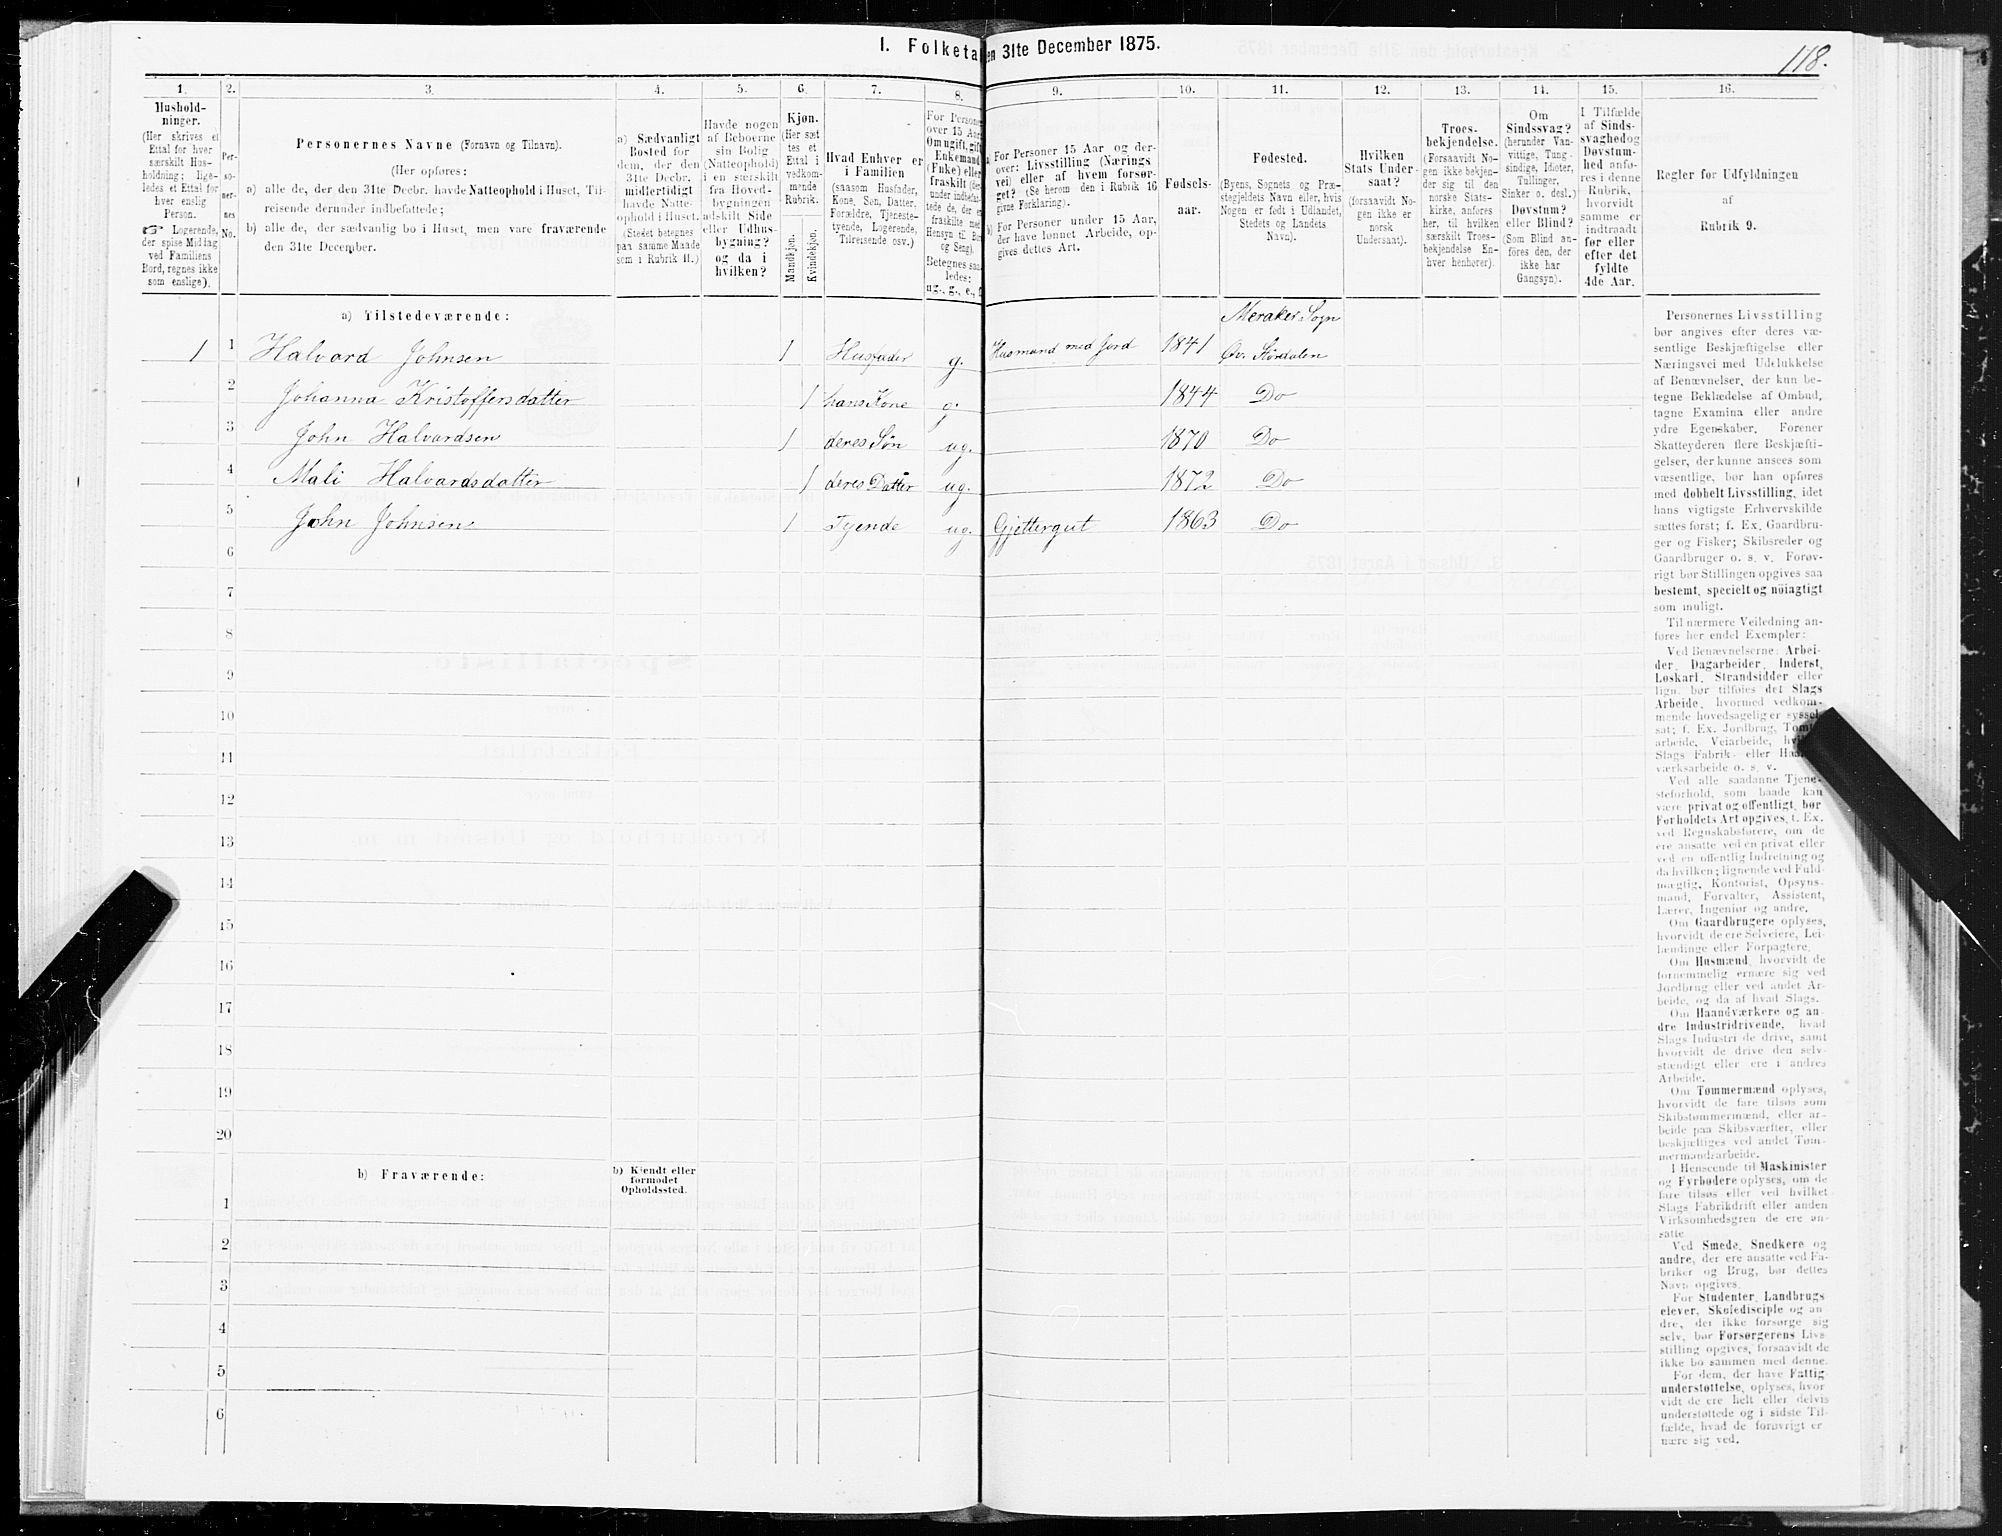 118.
1. Folketa en 31te December 1875.
1. 2. 3. 4. 5. 6. 7. 8. 9. 10. 11. 12. 13. 14. 15. 16.
Hushold-
ninger.
(Her skrives et
Ettal for hver
særskilt Hus-
holdning; lige-
ledes et Ettal for
hver enslig
Person.
☞ Logerende,
der spise Middag
ved Familiens
Bord, regnes ikke
som enslige).
Per-
so-
ner-
nes
No.
Personernes Navne (Fornavn og Tilnavn).
(Her opføres:
a) alle de, der den 31te Decbr. havde Natteophold i Huset, Til-
reisende derunder indbefattede;
b) alle de, der sædvanlig bo i Huset, men vare fraværende
den 31te December.
a) Sædvanligt
Bosted for
dem, der den
31te Decbr.
midlertidigt
havde Natte-
ophold i Huset.
(Stedet betegnes
paa samme Maade
som i Rubrik 11.)
Havde nogen
af Beboerne
sin Bolig
(Natteophold)
i en særskilt
fra Hoved-
bygningen
adskilt Side
eller Udhus-
bygning?
og da i
hvilken?
Kjøn.
(Her sæt
tes et
Ettal i
vedkom-
mende
Rubrik.
Mandkjøn.
Kvindekjøn.
Hvad Enhver er
i Familien
(saasom Husfader,
Kone, Søn, Datter,
Forældre, Tjeneste-
tyende, Logerende,
Tilreisende osv.)
For Personer
over 15 Aar:
Om ugift, gift,
Enkemand
(Enke) eller
fraskilt (der-
under indbefat-
tede de, der er
fraskilte med
Hensyn til Bord
og Seng).
Betegnes saa-
ledes:
ug., g., e., f.
a) For Personer 15 Aar og der-
over: Livsstilling (Nærings
vei) eller af hvem forsør-
get? (Se herom den i Rubrik 16
givne Forklaring).
b) For Personer under 15 Aar,
der have lønnet Arbeide, op-
gives dettes Art.
Fødsels-
aar.
Fødested.
(Byens, Sognets og Præ-
stegjeldets Navn eller, hvis
Nogen er født i Udlandet,
Stedets og Landets
Navn).
Hvilken
Stats Under-
saat?
(forsaavidt No-
gen ikke er
norsk
Undersaat).
Troes-
bekjendelse.
(Forsaavidt No-
gen ikke bekjen-
der sig til den
norske Stats-
kirke, anføres
her, til hvilken
særskilt Troes-
bekjendelse En-
hver henhører).
Om
Sindssvag?
(herunder Van-
vittige, Tung-
sindige, Idioter,
Tullinger,
Sinker o. desl.)
Døvstum?
eller Blind?
(Som Blind an-
føres den, der
ikke har
Gangsyn).
I Tilfælde
af Sinds-
svaghed og
Døvstum-
hed anfø-
res i denne
Rubrik,
hvorvidt
samme er
indtraadt
før eller
efter det
fyldte
4de Aar.
Regler for Udfyldningen
af
Rubrik 9.
a) Tilstedeværende:
Meraker Sogn
1 1 Halvard Johnsen 1 Husfader g. Husmand med Jord 1841 Øv. Størdalen
2 Johanna Kristoffersdatter 1 hans Kone g. 1844 Do
3 John Halvardsen 1 deres Søn ug. 1870 Do
4 Mali Halvardsdatter 1 deres Datter ug. 1872 Do
5 John Johnsen 1 Tyende ug. Gjettergut 1863 Do
6
7
8
9
10
11
12
13
14
15
16
17
18
19
20
b) Fraværende:
b) Kjendt eller
formodet
Opholdssted.
1
2
3
4
5
6
Personernes Livsstilling
bør angives efter deres væ-
sentlige Beskjæftigelse eller
Næringsvei med Udelukkelse
af Benævnelser, der kun be-
tegne Beklædelse af Ombud,
tagne Examina eller andre
ydre Egenskaber. Forener
Skatteyderen flere Beskjæfti-
gelser, der kunne ansees som
væsentlige, bør han opføres
med dobbelt Livsstilling, idet
hans vigtigste Erhvervskilde
sættes først; f. Ex. Gaardbru-
ger og Fisker; Skibsreder og
Gaardbruger o. s. v. Forøv-
rigt bør Stillingen opgives saa
bestemt, specielt og nøiagtigt
som muligt.
Til nærmere Veiledning an-
føres her endel Exempler:
Ved Benævnelserne: Arbei-
der, Dagarbeider, Inderst,
Løskarl, Strandsidder eller
lign. bør tilføies det Slags
Arbeide, hvormed vedkom-
mende hovedsagelig er syssel-
sat; f. Ex. Jordbrug, Tømt
arbeide, Veiarbeide, hvi
Slags Fabrik- eller Haa
værksarbeide o. s. v.
Ved alle saadanne Tjene-
steforhold, som baade kan
være privat og offentligt, bør
Forholdets Art opgives, f. Ex.
ved Regnskabsførere, om de
ere ansatte ved en privat eller
ved en offentlig Indretning og
da hvilken; lignende ved Fuld-
mægtig, Kontorist, Opsyns-
mand, Forvalter, Assistent,
Lærer, Ingeniør og andre.
Om Gaardbrugere oplyses,
hvorvidt de ere Selveiere, Lei-
lændinge eller Forpagtere.
Om Husmænd, hvorvidt de
fornemmelig ernære sig ved
Jordbrug eller ved andet Ar-
beide, og da af hvad Slags.
Om Haandværkere og an-
dre Industridrivende, hvad
Slags Industri de drive, samt
hvorvidt de drive den selv-
stændigt eller ere i andres
Arbeide.
Om Tømmermænd oplyses,
hvorvidt de fare tilsøs som
Skibstømmermænd, eller ar-
beide paa Skibsværfter, eller
beskjæftiges ved andet Tøm-
mermandsarbeide.
I Henseende til Maskinister
og Fyrbødere oplyses, om de
fare tilsøs eller ved hvilket
Slags Fabrikdrift eller anden
Virksomhedsgren de ere an-
satte
Ved Smede, Snedkere og
andre, der ere ansatte ved Fa-
briker og Brug, bør dettes
Navn opgives.
For Studenter, Landbrugs-
elever, Skoledisciple og an-
dre, der ikke forsørge sig
selv, bør Forsørgerens Livs-
stilling opgives, forsaavidt de
ikke bo sammen med denne.
For dem, der have Fattig-
understøttelse, oplyses, hvor
vidt de ere helt eller delvis
understøttede og i sidste Til-
fælde, hvad de forøvrigt er
nære sig ved.